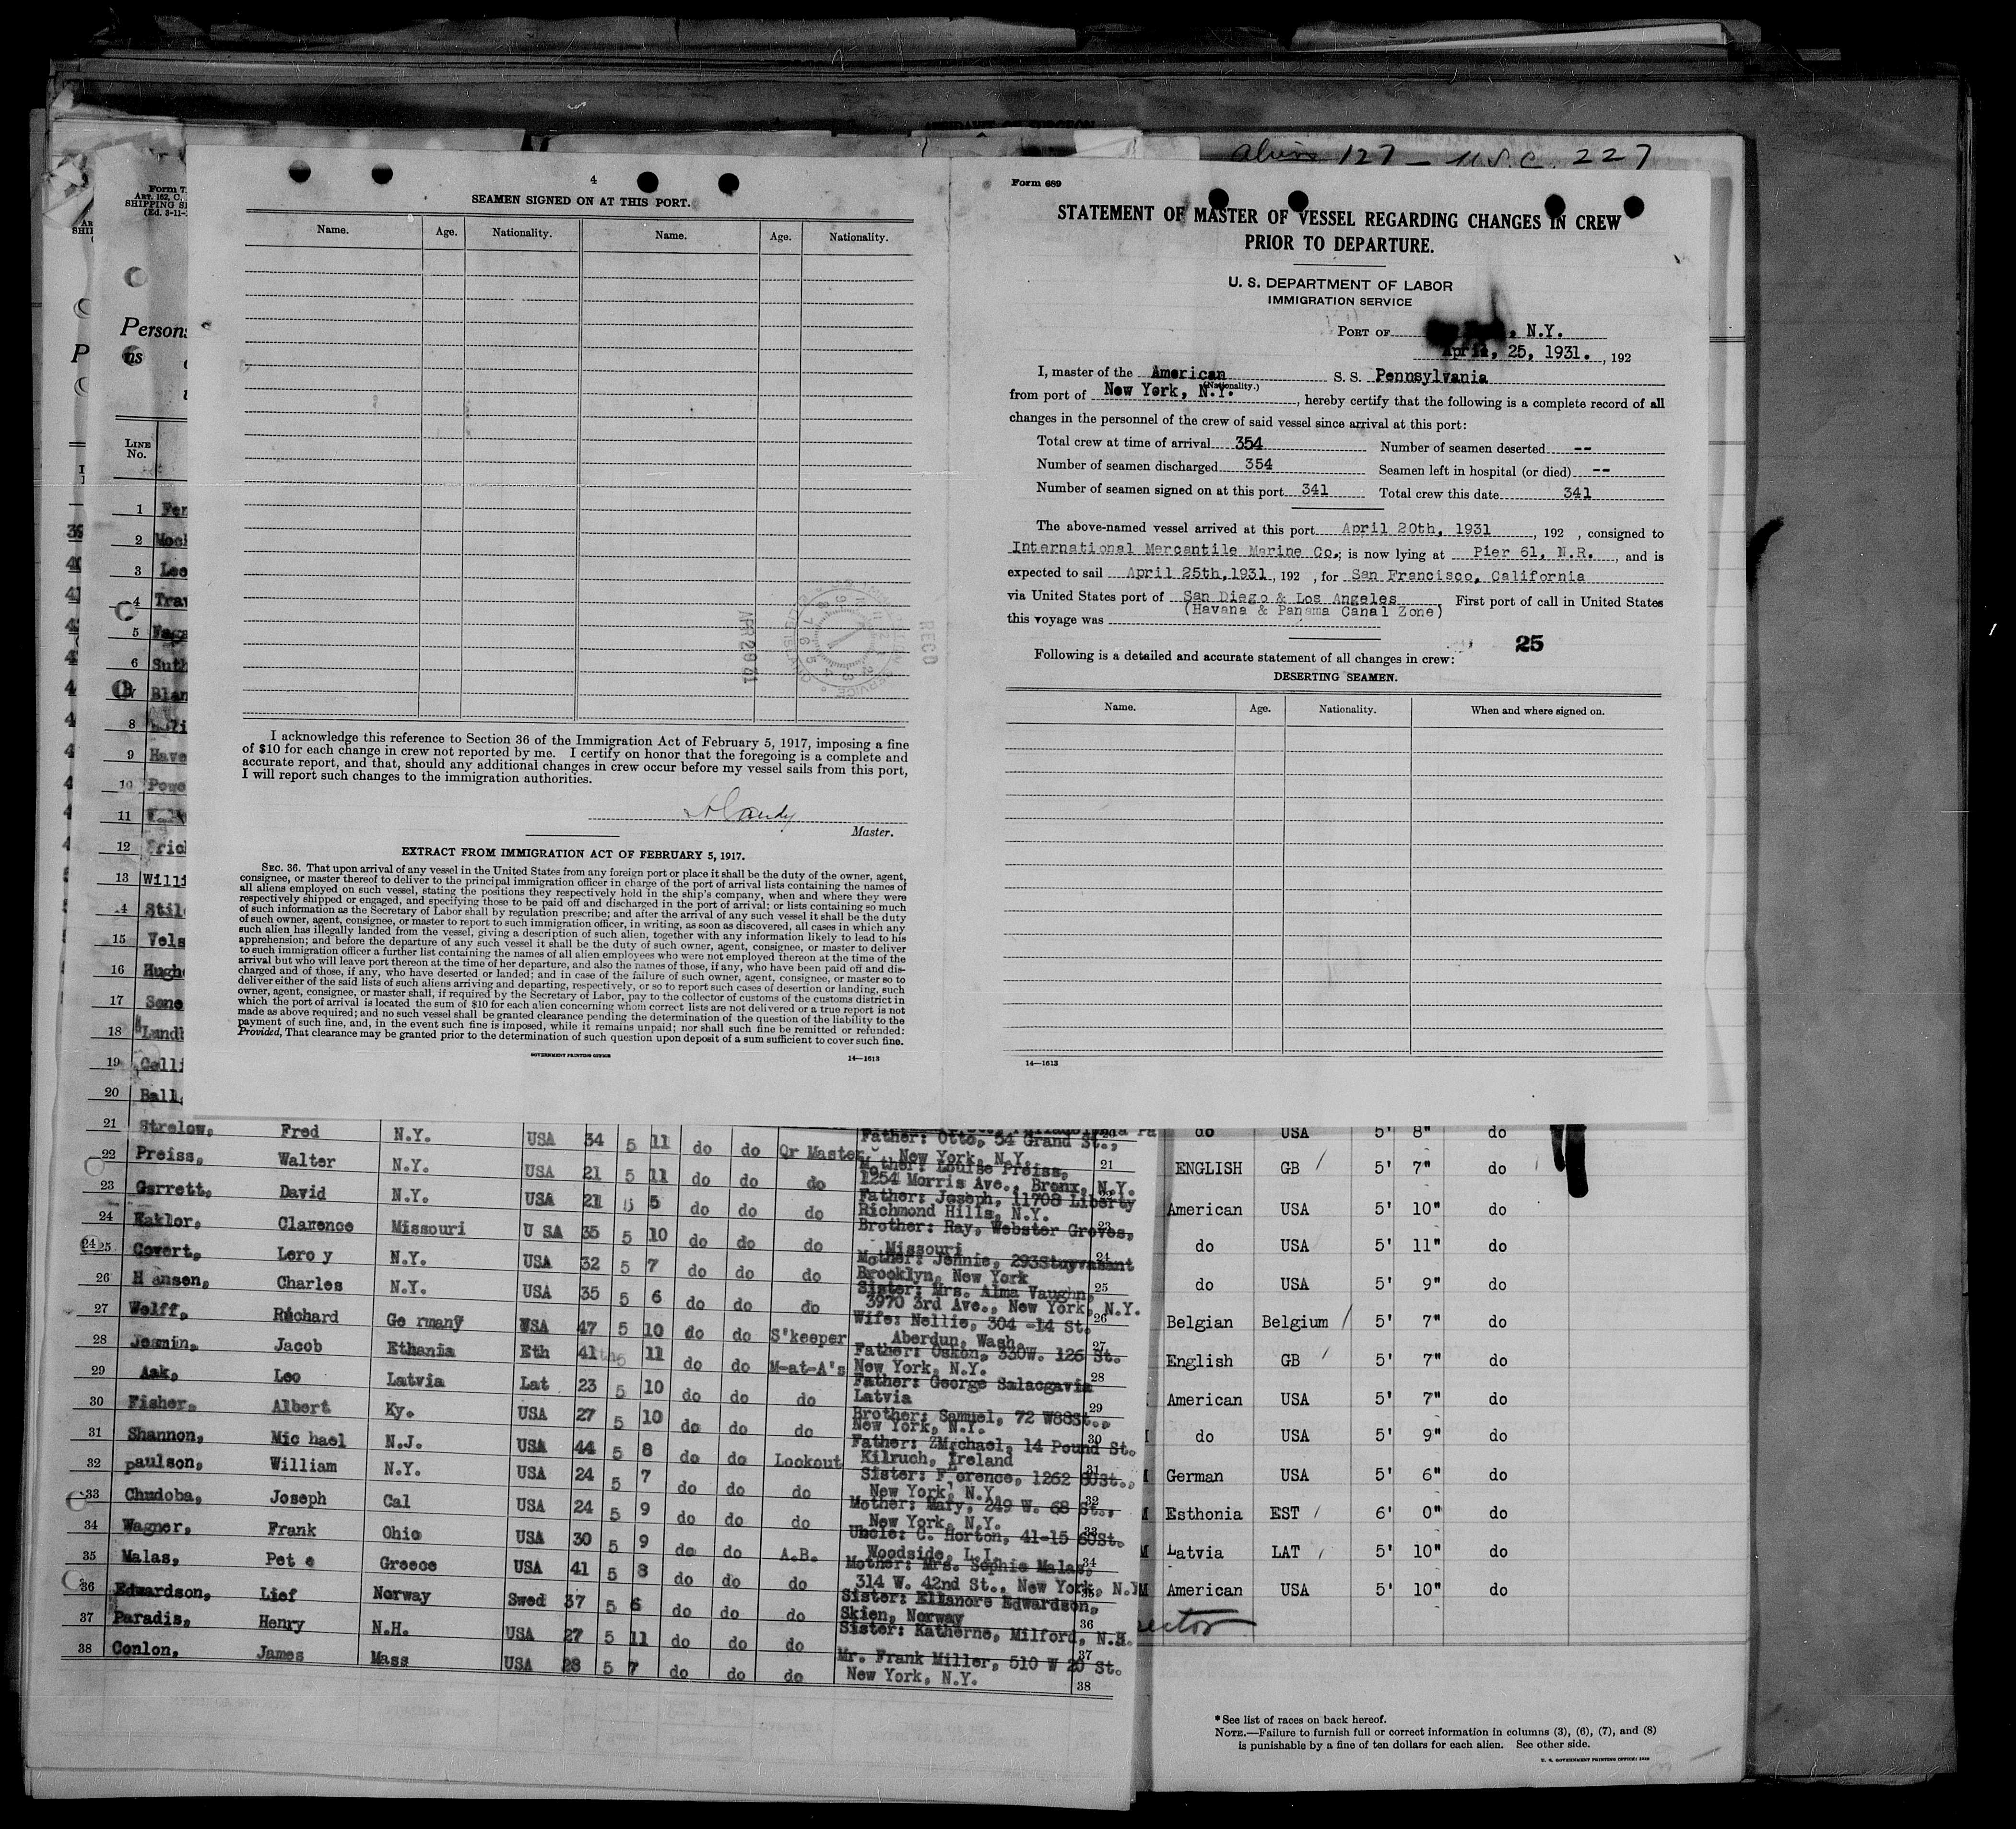 aliens 127 - U.S.C. 227
4
SEAMEN SIGNED ON AT THIS PORT.
Name. Age. Nationality. Name. Age. Nationality.
RECD
I acknowledge this reference to Section 36 of the Immigration Act of February 5, 1917, imposing a fine
of $10 for each change in crew not reported by me. I certify on honor that the foregoing is a complete and
accurate report, and that, should any additional changes in crew occur before my vessel sails from this port,
I will report such changes to the immigration authorities.
Master.
EXTRACT FROM IMMIGRATION ACT OF FEBRUARY 5, 1917.
SEC. 36. That upon arrival of any vessel in the United States from any foreign port or place it shall be the duty of the owner, agent,
consignee, or master thereof to deliver to the principal immigration officer in charge of the port of arrival lists containing the names of
all aliens employed on such vessel, stating the positions they respectively hold in the ship's company, when and where they were
respectively shipped or engaged, and specifying those to be paid off and discharged in the port of arrival; or lists containing so much
of such information as the Secretary of Labor shall by regulation prescribe; and after the arrival of any such vessel it shall be the duty
of such owner, agent, consignee, or master to report to such immigration officer, in writing, as soon as discovered, all cases in which any
such alien has illegally landed from the vessel, giving a description of such alien, together with any information likely to lead to his
apprehension; and before the departure of any such vessel it shall be the duty of such owner, agent, consignee, or master to deliver
to such immigration officer a further list containing the names of all alien employees who were not employed thereon at the time of the
arrival but who will leave port thereon at the time of her departure, and also the names of those, if any, who have been paid off and dis-
charged and of those, if any, who have deserted or landed; and in case of the failure of such owner, agent, consignee, or master so to
deliver either of the said lists of such aliens arriving and departing, respectively, or so to report such cases of desertion or landing, such
owner, agent, consignee, or master shall, if required by the Secretary of Labor, pay to the collector of customs of the customs district in
which the port of arrival is located the sum of $10 for each alien concerning whom correct lists are not delivered or a true report is not
made as above required; and no such vessel shall be granted clearance pending the determination of the question of the liability to the
payment of such fine, and, in the event such fine is imposed, while it remains unpaid; nor shall such fine be remitted or refunded:
Provided, That clearance may be granted prior to the determination of such question upon deposit of a sum sufficient to cover such fine.
GOVERNMENT PRINTING OFFICE 14—1613
Form 689
STATEMENT OF MASTER OF VESSEL REGARDING CHANGES IN CREW
PRIOR TO DEPARTURE.
U. S. DEPARTMENT OF LABOR
IMMIGRATION SERVICE
PORT OF , N.Y.
April, 25, 1931. , 192
I, master of the American S. S. Pennsylvania
(Nationality.)
from port of New York, N.Y. , hereby certify that the following is a complete record of all
changes in the personnel of the crew of said vessel since arrival at this port:
Total crew at time of arrival 354 Number of seamen deserted --
Number of seamen discharged 354 Seamen left in hospital (or died) --
Number of seamen signed on at this port 341 Total crew this date 341
The above-named vessel arrived at this port April 20th, 1931 , 192 , consigned to
International Mercantile Marine Co.; is now lying at Pier 61, N.R. , and is
expected to sail April 25th,1931 , 192 , for San Francisco, California
via United States port of San Diego & Los Angeles . First port of call in United States
(Havana & Panama Canal Zone)
this voyage was
25
Following is a detailed and accurate statement of all changes in crew:
DESERTING SEAMEN.
Name. Age. Nationality. When and where signed on.
14—1613
Form 7
ART. 162, C.
SHIPPING SE
(Ed. 3-11-
Persons
LINE
No.
1
2
3
4 Trav
5
6 Suth
Blan
8
9 Have
10 Powe
11
12
13 Willi
14
15 Vels
16 Hugh
17
18 Lundb
19 Colli
20 Ball,
21 Strelow, Fred N.Y. USA 34 5 11 do do Qr Master Father: Otto, 54 Grand St., New York, N.Y. 21
22 Preiss, Walter N.Y. USA 21 5 11 do do do Mother: Louise Preiss, 1254 Morris Ave., Bronx, N.Y. 22
23 Garrett, David N.Y. USA 21 5 5 do do do Father: Joseph, 11708 Liberty Richmond Hills, N.Y. 23
24 Eakler, Clarence Missouri U SA 35 5 10 do do do Brother: Ray, Webster Groves, Missouri 24
25 Covert, Lero y N.Y. USA 32 5 7 do do do Mother: Jennie, 293Stuyvasant Brooklyn, New York 25
26 H ansen, Charles N.Y. USA 35 5 6 do do do Sister: Mrs. Alma Vaughn, 3970 3rd Ave., New York, N.Y. 26
27 Wolff, Richard Ge rmany USA 47 5 10 do do S'keeper Wife: Nellie, 304 -14 St. Aberdun, Wash. 27
28 Jesmin, Jacob Ethania Eth 41 5 11 do do M-at-A's Father: Oskon, 330W. 126 St. New York, N.Y. 28
29 Aak, Leo Latvia Lat 23 5 10 do do do Father: George Salacgavia Latvia 29
30 Fisher, Albert Ky. USA 27 5 10 do do do Brother: Samuel, 72 W88St., New York, N.Y. 30
31 Shannon, Mic hael N.J. USA 44 5 8 do do Lookout Father: ZMichael, 14 Pound St. Kilruch, Ireland 31
32 paulson, William N.Y. USA 24 5 7 do do do Sister: Florence, 1262 80St., New York, N.Y. 32
33 Chudoba, Joseph Cal USA 24 5 9 do do do Mother: Mary, 249 W. 68 St., New York, N.Y. 33
34 Wagner, Frank Ohio USA 30 5 9 do do A.B. Uncle: C. Horton, 41-15 60St. Woodside, L.I. 34
35 Malas, Pet e Greece USA 41 5 8 do do do Mother: Mrs. Sophie Malas, 314 W. 42nd St., New York, N.Y 35
36 Edwardson, Lief Norway Swed 37 5 6 do do do Sister: Elianore Edwardson, Skien, Norway 36
37 Paradis, Henry N.H. USA 27 5 11 do do do Sister: Katherne, Milford, N.H. 37
38 Conlon, James Mass USA 28 5 7 do do do Mr. Frank Miller, 510 W 20 St. New York, N.Y. 38
do USA 5' 8" do
ENGLISH GB 5' 7" do
American USA 5' 10" do
do USA 5' 11" do
do USA 5' 9" do
Belgian Belgium 5' 7" do
English GB 5' 7" do
American USA 5' 7" do
do USA 5' 9" do
German USA 5' 6" do
Esthonia EST 6' 0" do
Latvia LAT 5' 10" do
American USA 5' 10" do
ector
*See list of races on back hereof.
NOTE.—Failure to furnish full or correct information in columns (3), (6), (7), and (8)
is punishable by a fine of ten dollars for each alien. See other side.
U. S. GOVERNMENT PRINTING OFFICE: 1930